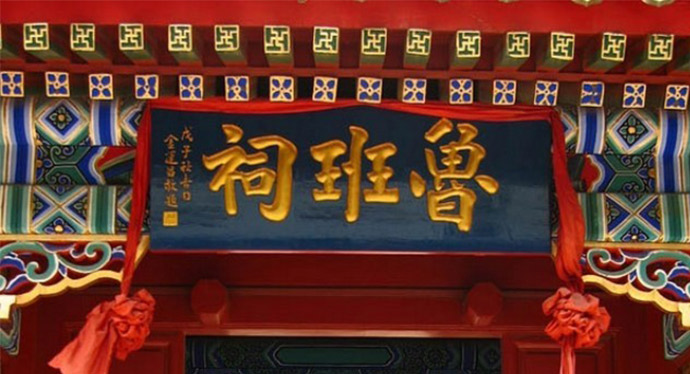 魯班祠
戊子秋吉日
金運昌敬題